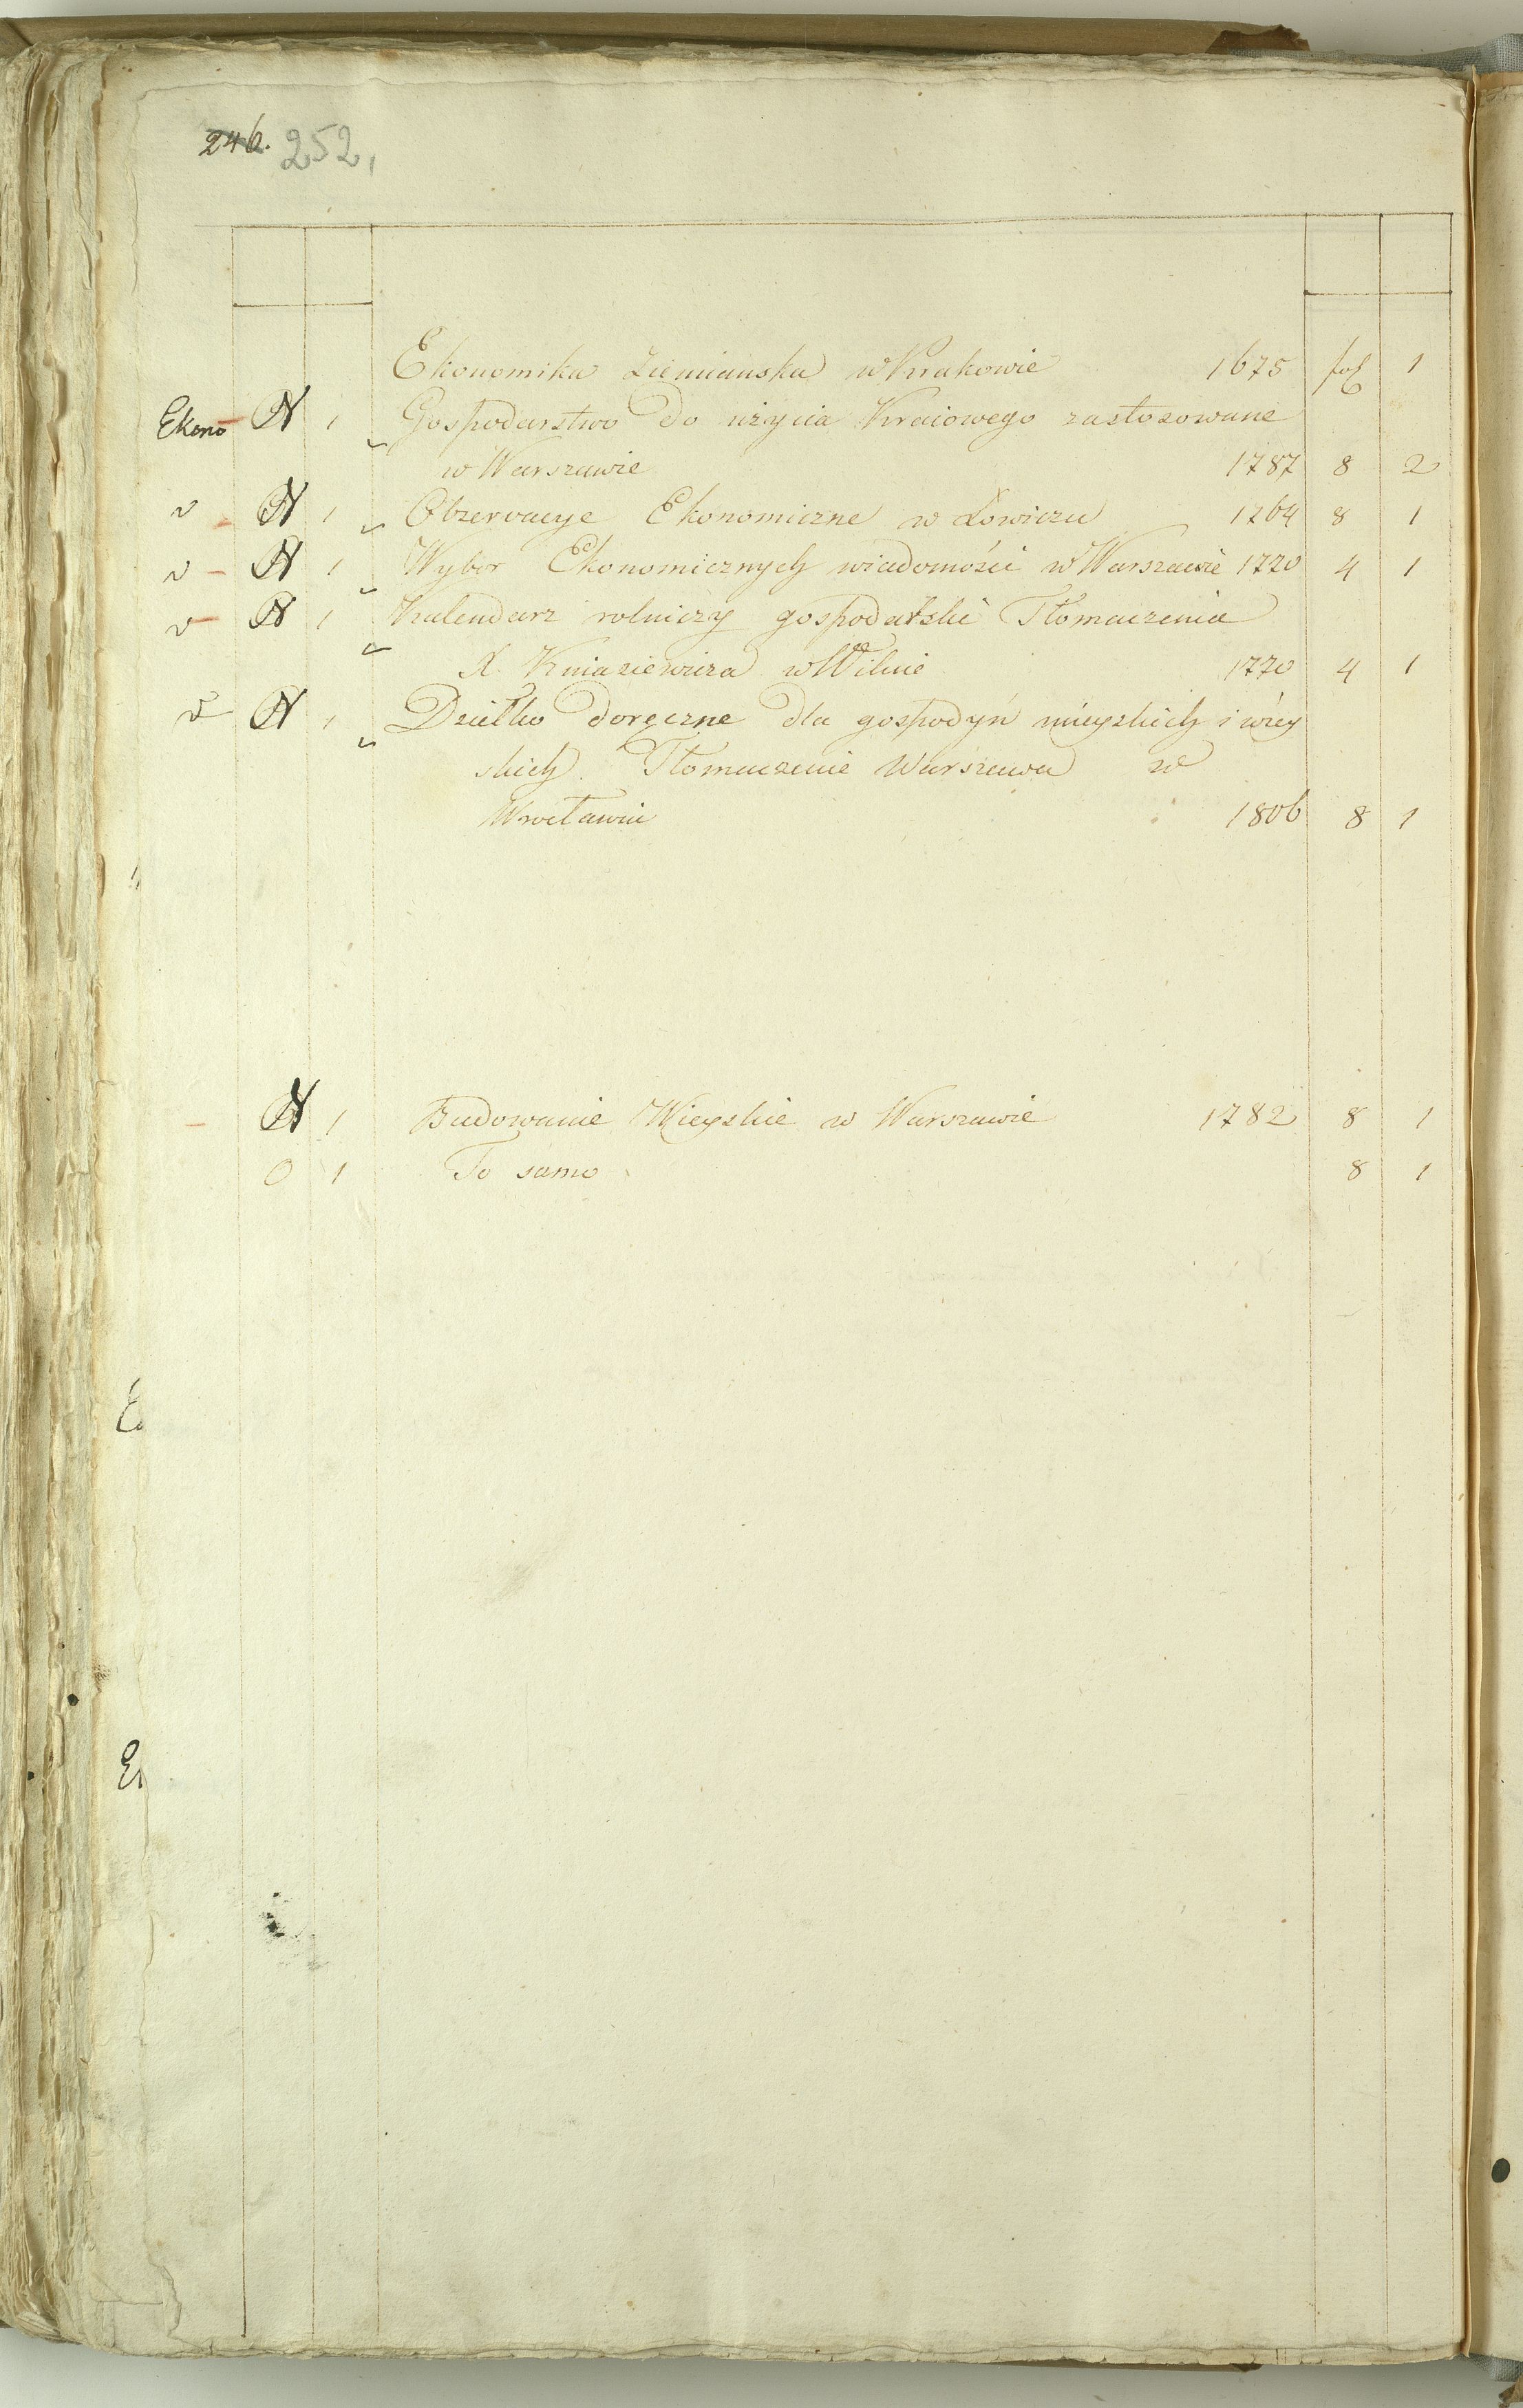 246. 252,
Ekonomika Ziemianska w Krakowie 1675 fol 1
Ekono N 1 Gospodarstwo do użycia Kraiowego zastosowane
w Warszawie 1787 8 2
v N 1 Obzerwacye Ekonomiczne w Łowiczu 1764 8 1
v N 1 Wybor Ekonomicznych wiadomości w Warszawie 1770 4 1
v N 1 Kalendarz rolniczy gospodarski Tłomaczenia
X. Kniaziewicza w Wilnie 1770 4 1
v N 1 Dziełko doręczne dla gospodyń mieyskich i wiey
skich. Tłomaczenie Warszawa w
Wrocławiu 1806 8 1
N 1 Budowanie Wieyskie w Warszawie 1782 8 1
O 1 To samo 8 1